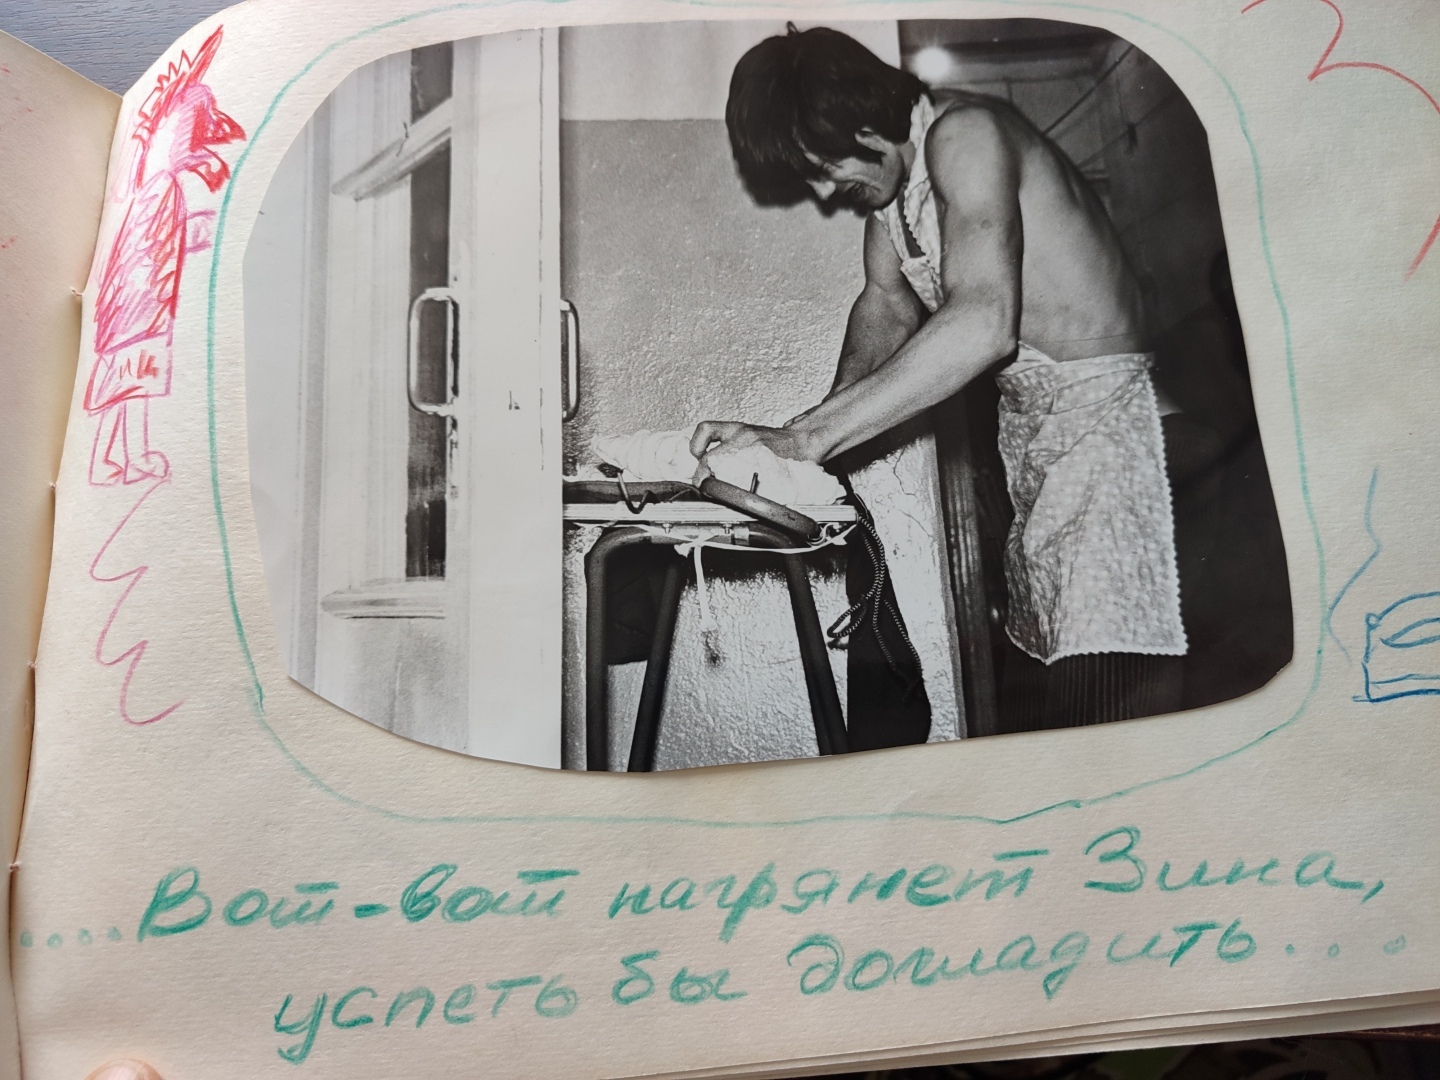 ....Вот-вот нагрянет Зина,
успеть бы догладить...